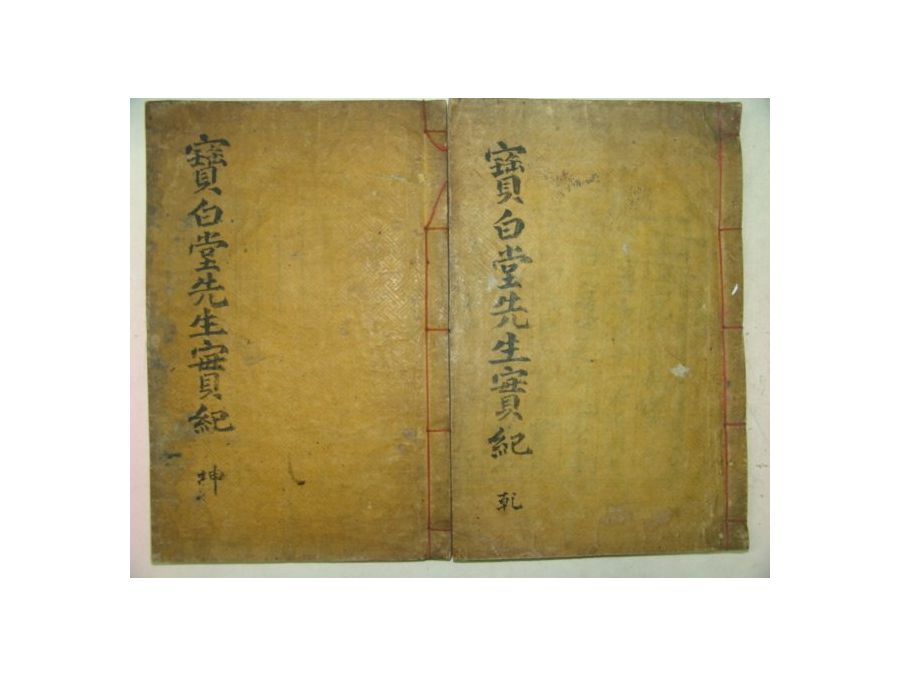 寶白堂先生實紀
乾
寶白堂先生實紀
坤